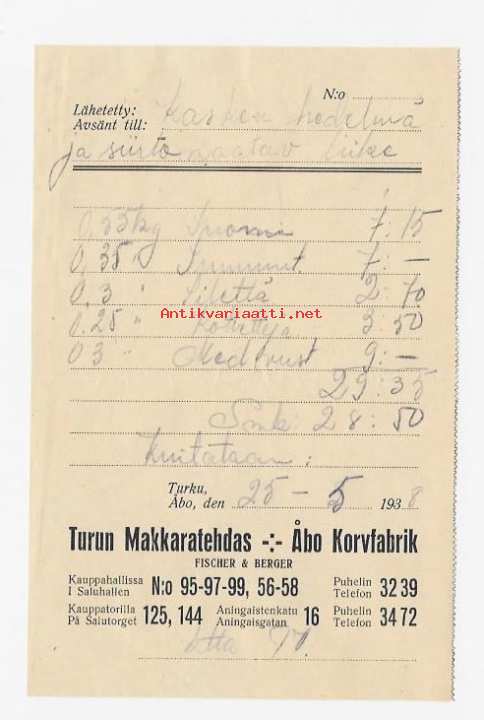 N:o
Lähetetty: Kasken hedelmä
Avsänt till:
ja siirto
0,55 kg Suomi 7:15
0,35 " 7:—
0,3 " 2:70
Antikvariaatti.net
0.25 " 3:50
03 " 9:—
29:35
28:50
Kuitataan:
Turku,
Åbo, den 25 – 5 1938
Turun Makkaratehdas -:- Åbo Korvfabrik
FISCHER & BERGER
Kauppahallissa
I Saluhallen N:o 95-97-99, 56-58 Puhelin
Telefon 32 39
Kauppatorilla
På Salutorget 125, 144 Aningaistenkatu
Aningaisgatan 16 Puhelin
Telefon 34 72